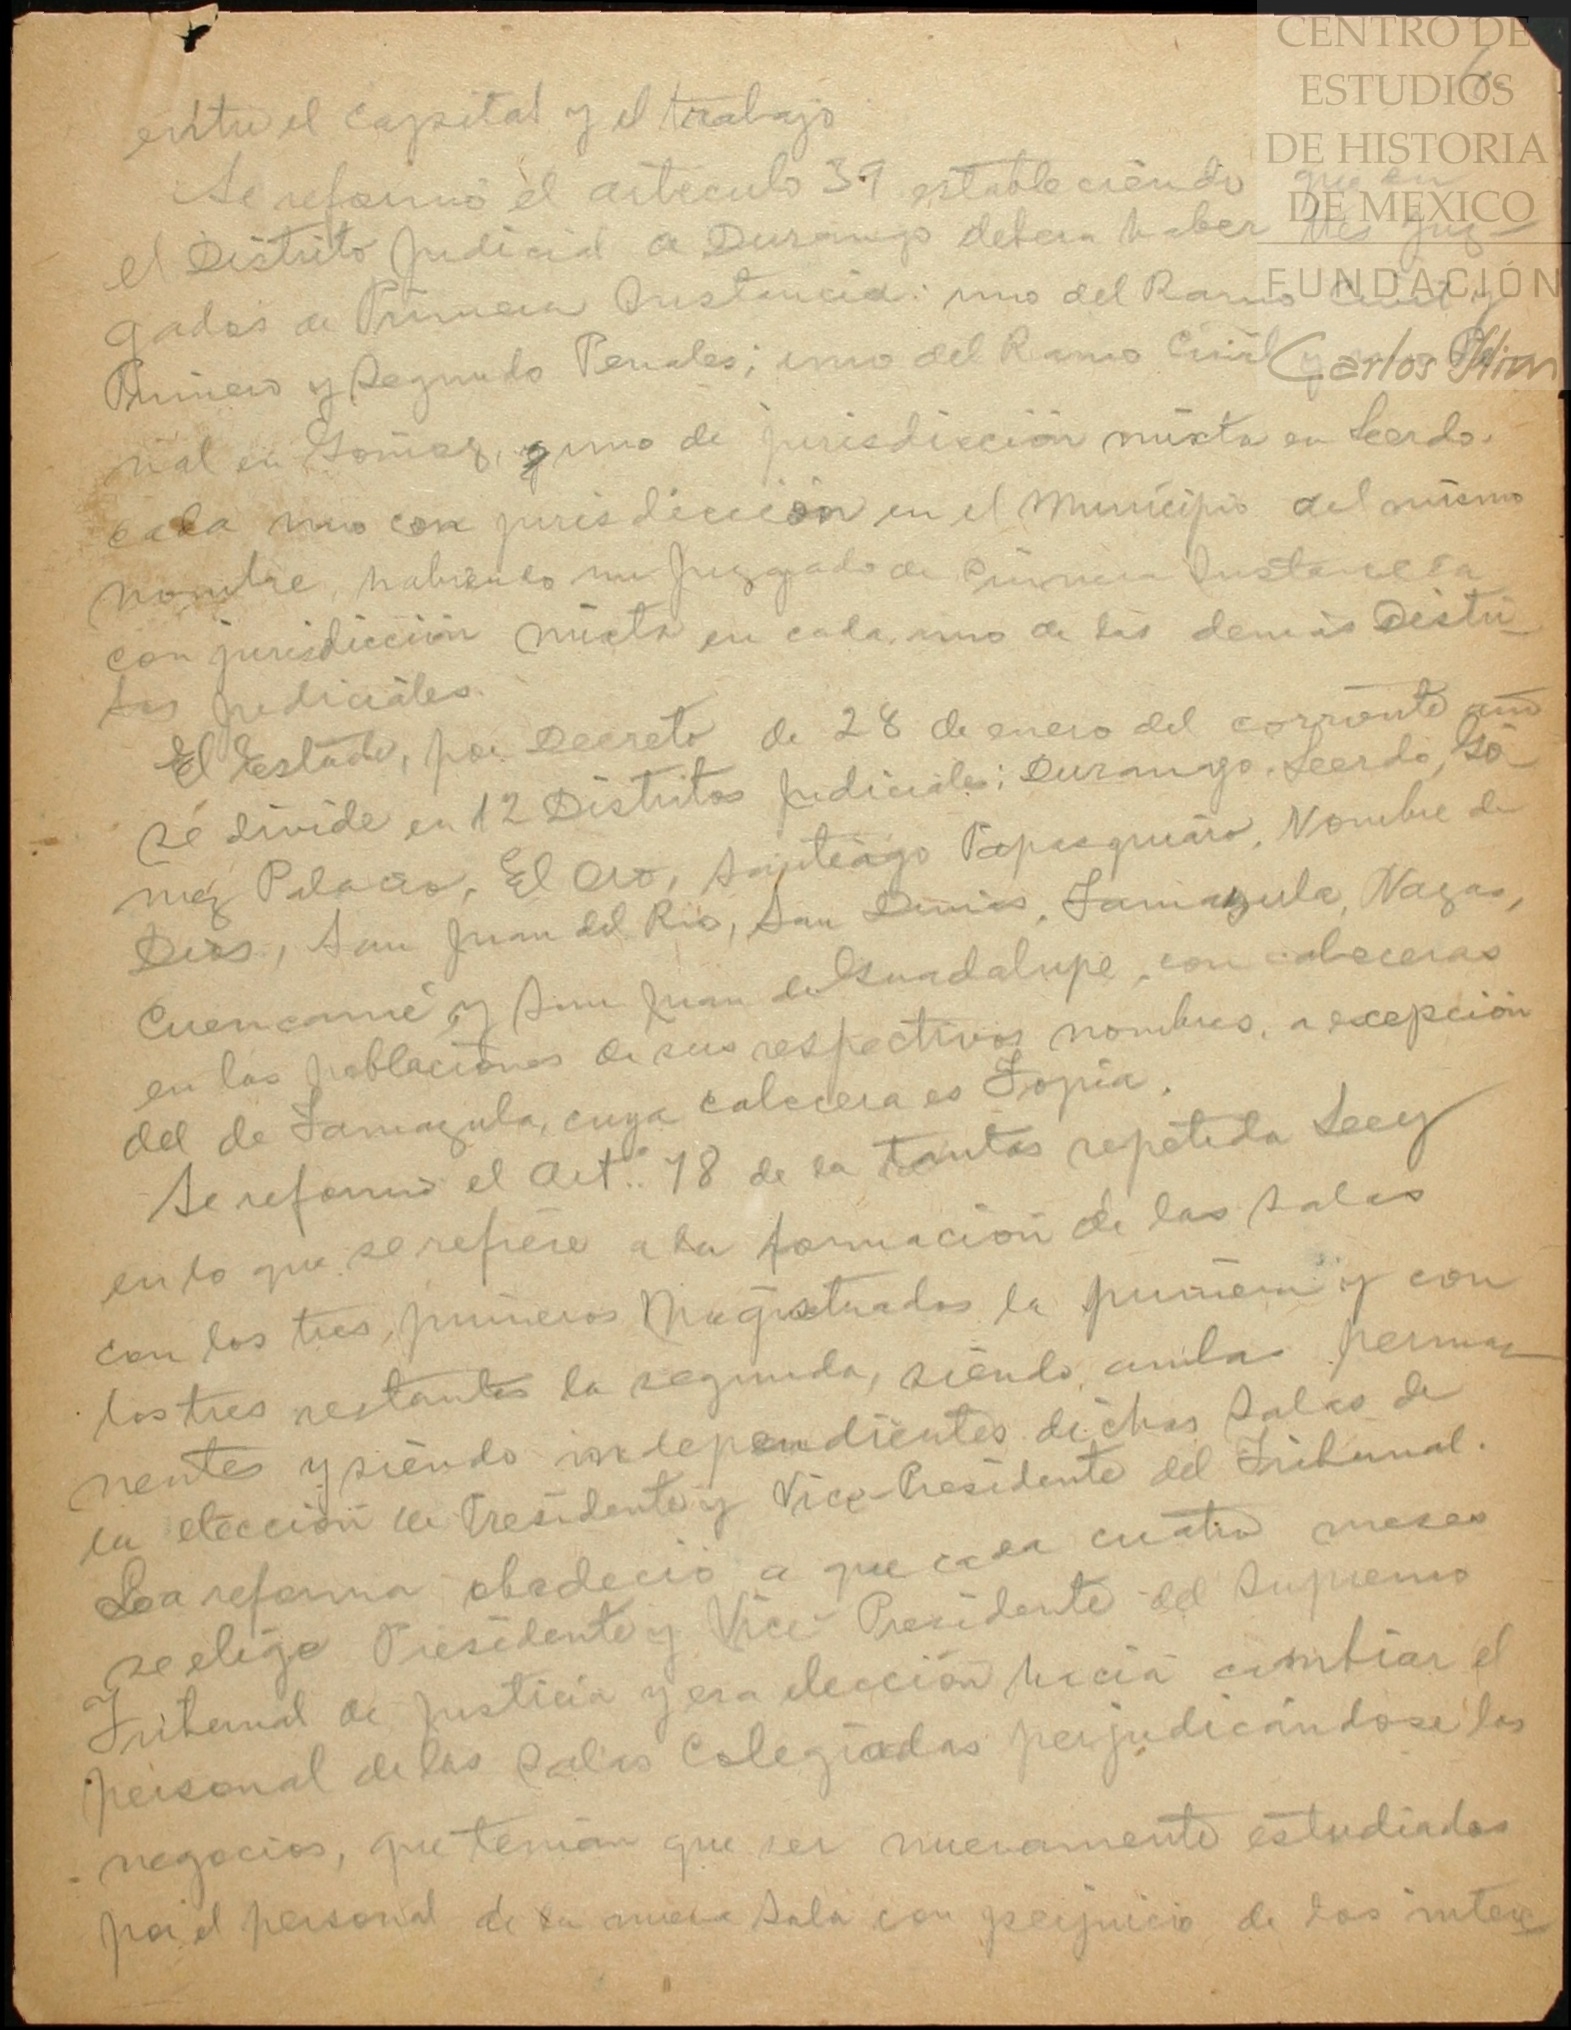 CENTRO DE
ESTUDIOS
DE HISTORIA
DE MEXICO
FUNDACIÓN
Carlos Slim
entre el capital y el trabajo
Se reformó el artículo 39 estableciéndo que en
el Distrito Judicial de Durango debera haber tres Juz-
gados de Primera Instancia: uno del Ramo Civil y
Primero y Segundo Penales; uno del Ramo Civil y
nal en Gómez, y uno de jurisdicción mixta en Lerdo.
cada uno con jurisdicción en el Municipio del mismo
nombre, habiendo un Juzgado de Primera Instancia
con jurisdicción mixta en cada uno de los demás Distri-
tos Judiciales.
El Estado, por Decreto de 28 de enero del corriente año
se divide en 12 Distritos Judiciales: Durango, Lerdo, Gó-
mez Palacio, El Oro, Santiago Papasquiaro, Nombre de
Dios, San Juan del Rio, San Dimas, Tamazula, Nazas,
Cuencamé y San Juan de Guadalupe, con cabeceras
en las poblaciones de sus respectivos nombres, a excepción
del de Tamazula, cuya cabecera es Topia.
Se reformó el Art. 18 de la tantas repetida Ley
en lo que se refiere a la formación de las Salas
con los tres primeros Magistrados la primera y con
los tres restantes la segunda, siendo ambas perma-
nentes y siendo independientes dichas Salas de
la elección de Presidente y Vice-Presidente del Tribunal.
La reforma obedeció a que cada cuatro meses
se elige Presidente y Vice-Presidente del Supremo
Tribunal de Justicia y esa elección hacía cambiar el
personal de las Salas Colegiadas perjudicándose los
negocios, que tenían que ser nuevamente estudiados
por el personal de la nueva Sala con perjuicio de los inter